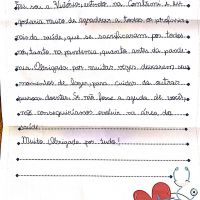 Eu sou a Kulhôri, estudo na Comfirmi. E eu
gostaria muito de agradecer a todos os profissio
nais da saúde, que se sacrificaram por todos
nós, tanto na pandemia, quanto antes da pande
mia. Obrigada por muitas vezes deixarem seus
momentos de lazer, para cuidar de outras
pessoas doentes. Se não fosse a ajuda de vocês,
não conseguiríamos evoluir na área da
saúde.
Muito Obrigada por tudo!